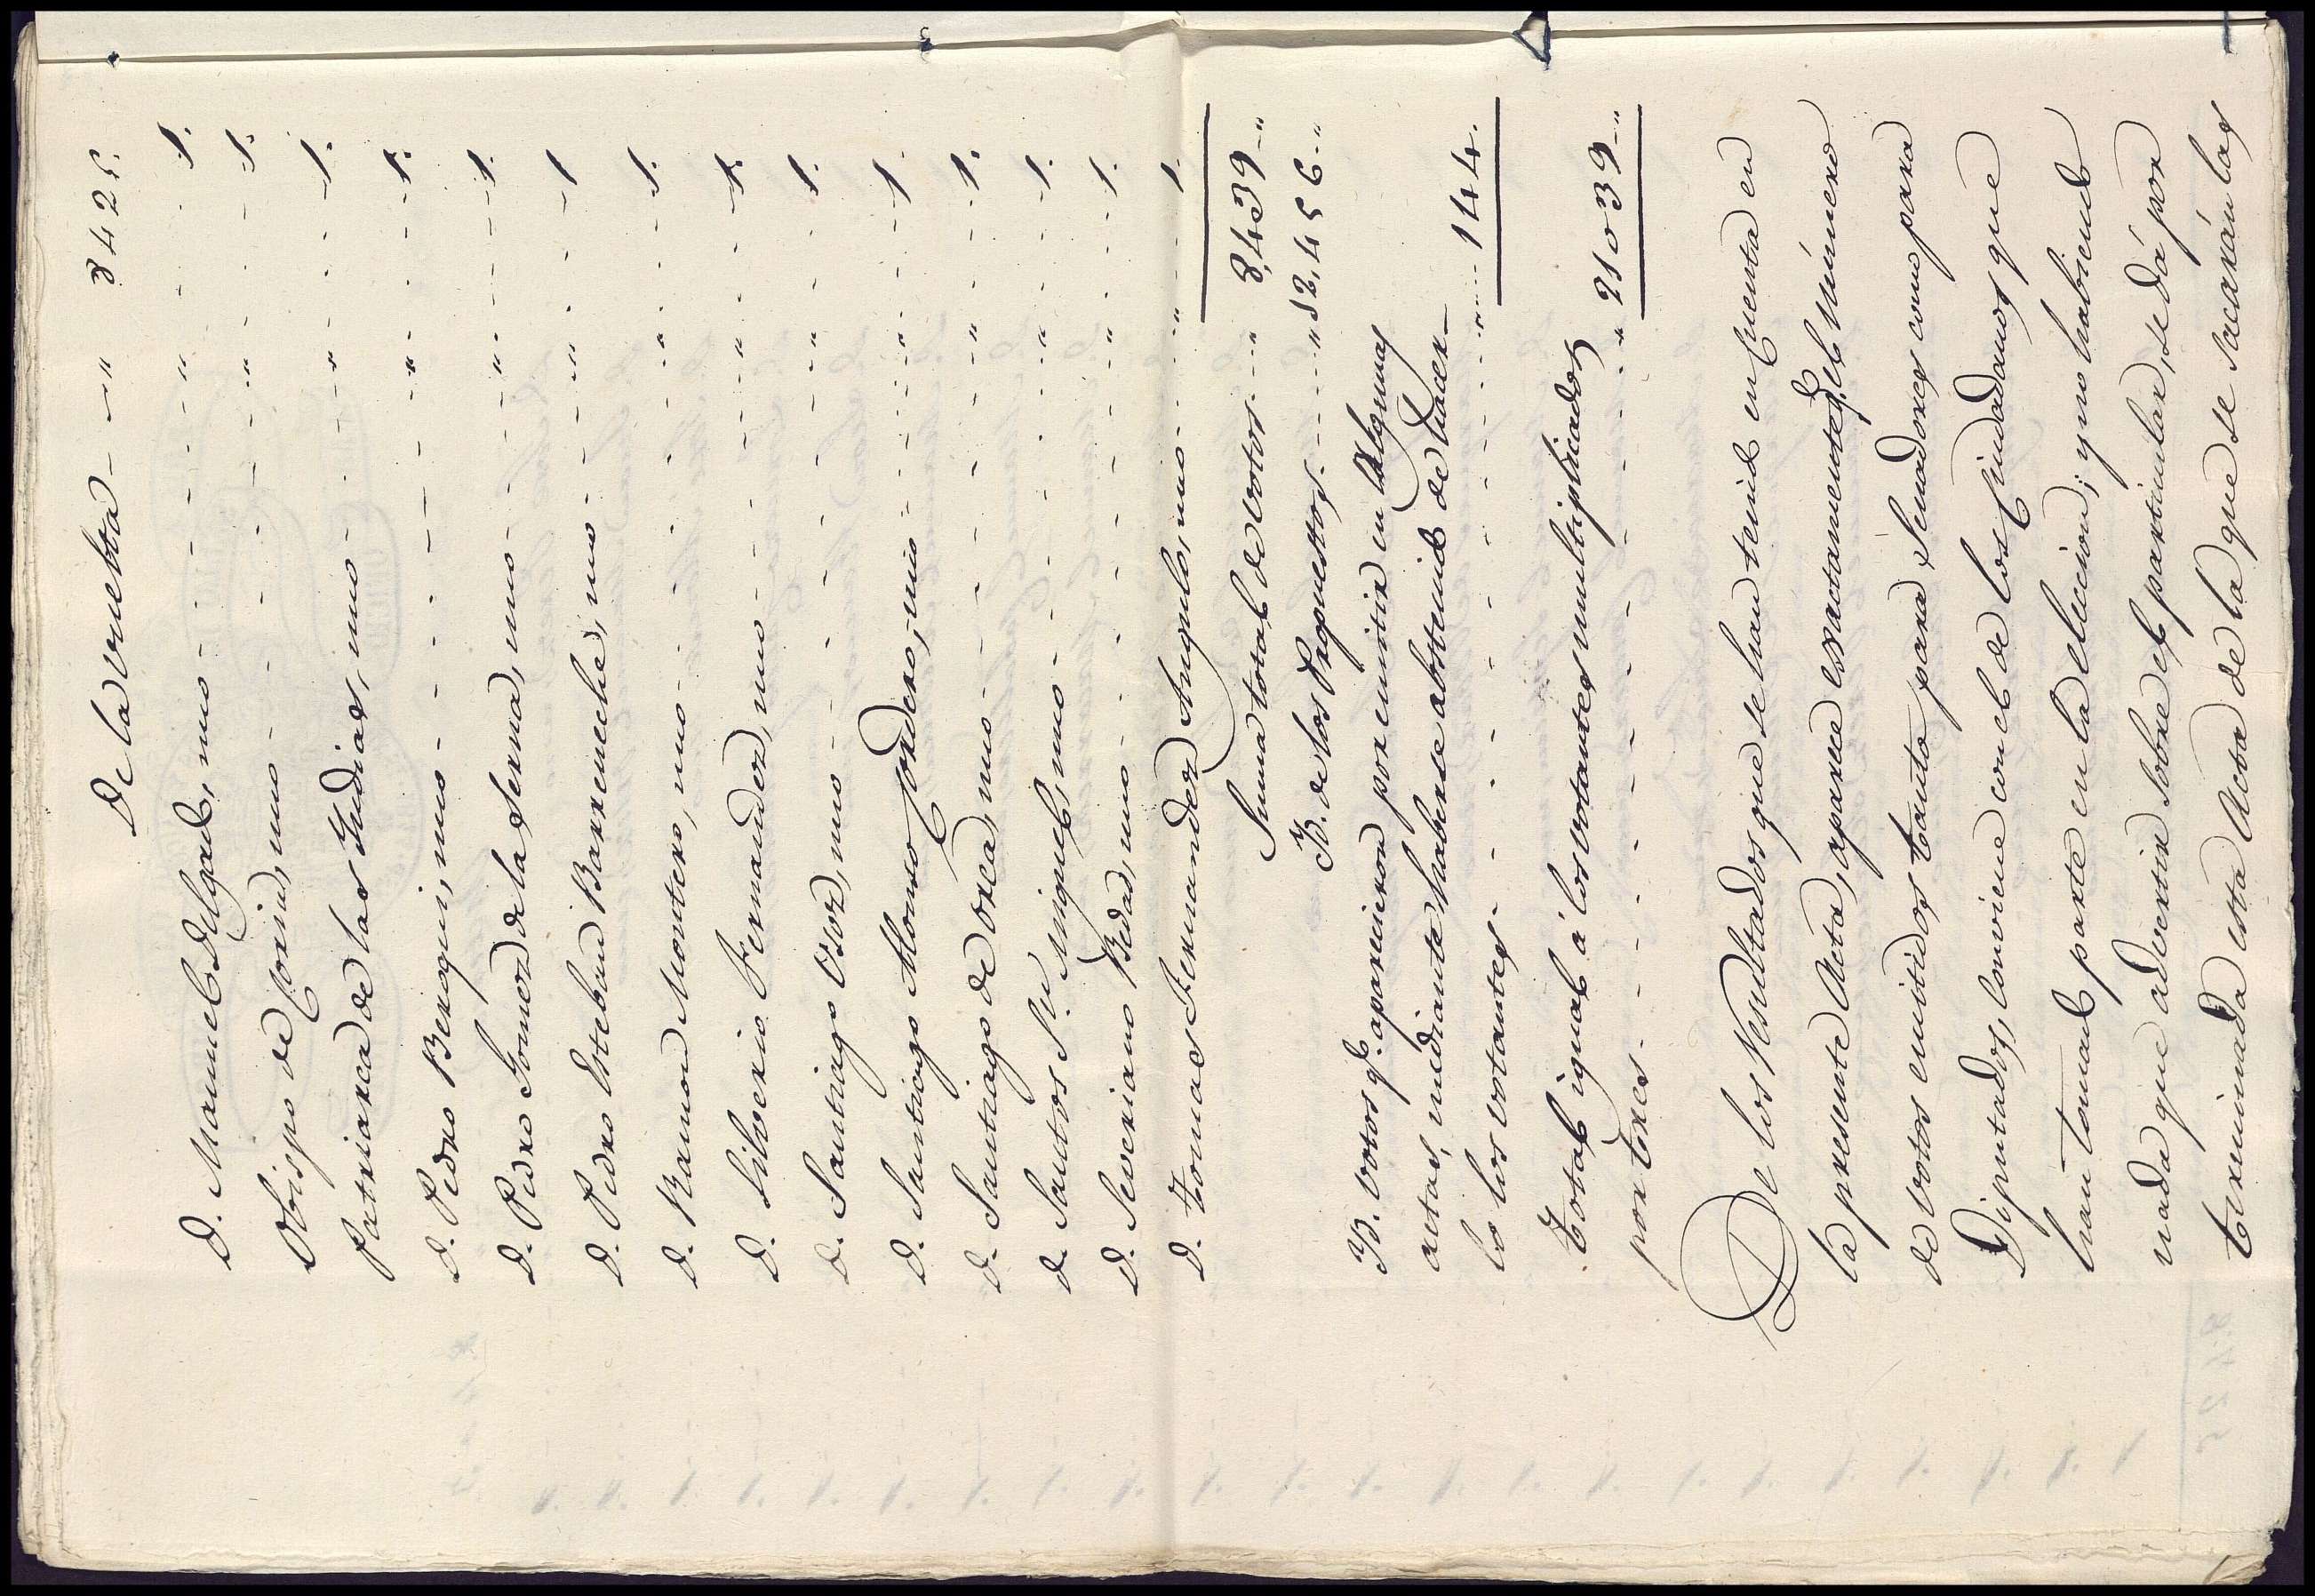 De la vuelta - - " 8425.
D. Manuel Delgado, uno - - - - - " - - 1.
Obispo de Coria, uno - - - - - " - - 1.
Patriarca de las Yndias, uno - - - " - - 1.
D. Pedro Beroqui, uno - - - - - " - - 1.
D. Pedro Gomez de la Serna, uno - - - " - - 1.
D. Pedro Esteban Barreneche, uno - - - " - - 1
D. Ramon Montero, uno - - - - - " - - 1.
D. Silverio Fernandez, uno - - - - " - - 1.
D. Santiago Osoz, uno - - - - - " - - 1.
D. Santiago Alonso Cordero, uno - - - " - - 1.
D. Santiago de Orca, uno - - - - " - - 1.
D. Santos Sn. Miguel, uno - - - - " - - 1.
D. Severiano Bedad, uno - - - - " - - 1.
D. Tomas Fernandez Angulo, uno - - - " - - 1.
Suma total de votos - - - " 8,439 - "
Yd. de los Propuestos - - - - " 12,456 - "
Yd. votos qe. aparecieron por emitir en algunas
actas, mediante haberse abstenido de hacer-
lo los votantes - - - - - - - " - - - 144.
Total igual á los votantes multiplicados
por tres - - - - - - - - " 21039 - "
De los Resultados que se han tenido en Cuenta en
la presente Acta, aparece esactamente qe. el número
de votos emitidos tanto para Senadores como para
Diputados, conviene con el de los Ciudadanos que
han tomado parte en la eleccion; y no habiendo
nada que advertir sobre el particular, se dá por
terminada esta Acta de la que se sacarán las